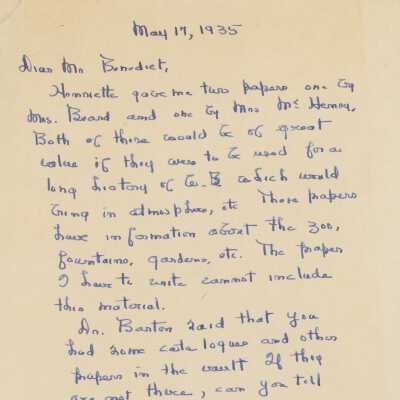 May 17, 1935
Dear Mr Benedict,
Henriette gave me two papers one by
Mrs. Beard and one by Mrs McHenry.
Both of these would be of great
value if they were to be used for a
long history of W. B which would
bring in atmosphere, etc These papers
have information about the zoo,
fountains, gardens, etc. The paper
I have to write cannot include
this material.
Dr. Barton said that you
had some catalogues and other
papers in the vault If they
are not there, can you tell